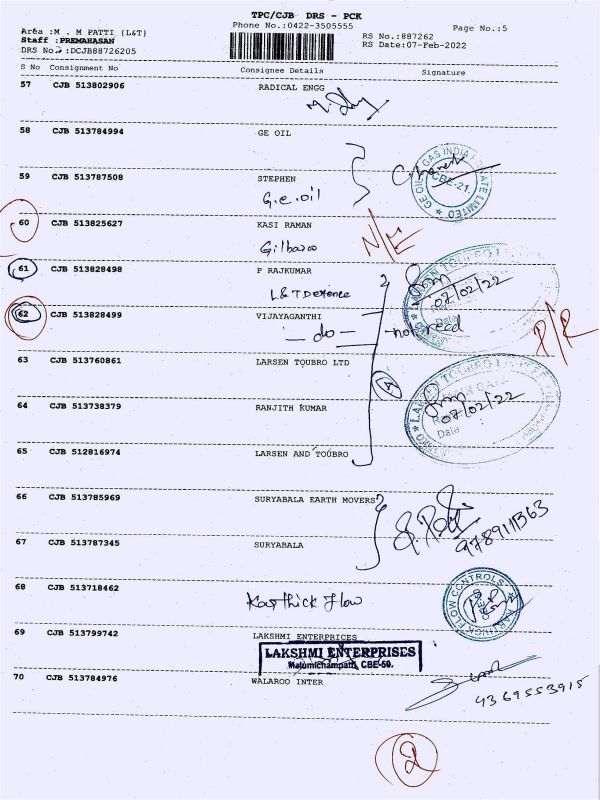 TPC/CJB DRS - PCK
Phone No.:0422-3505555
Page No.:5
Area :M . M PATTI (L&T)
Staff :PREMAHASAN
DRS No.:DCJB88726205
RS No.:887262
RS Date:07-Feb-2022
S No Consignment No Consignee Details Signature
57 CJB 513802906 RADICAL ENGG
58 CJB 513784994 GE OIL
59 CJB 513787508 STEPHEN
G.e.oil
GE OIL GAS INDIA PRIVATE LIMITED
CBE-21.
60 CJB 513825627 KASI RAMAN
N/E
61 CJB 513828498 P RAJKUMAR
L&T Defence
07/02/22
62 CJB 513828499 VIJAYAGANTHI
— do — not recd
P/R
63 CJB 513760861 LARSEN TOUBRO LTD
LARSEN TOUBRO LIMITED
64 CJB 513738379 RANJITH KUMAR
07/02/22
Date
65 CJB 512816974 LARSEN AND TOUBRO
66 CJB 513785969 SURYABALA EARTH MOVERS
67 CJB 513787345 SURYABALA
68 CJB 513718462
Karthick Flow
KARTHICK FLOW CONTROLS
69 CJB 513799742 LAKSHMI ENTERPRICES
LAKSHMI ENTERPRISES
Malumichampatti, CBE-50.
70 CJB 513784976 WALAROO INTER
4369553915
2